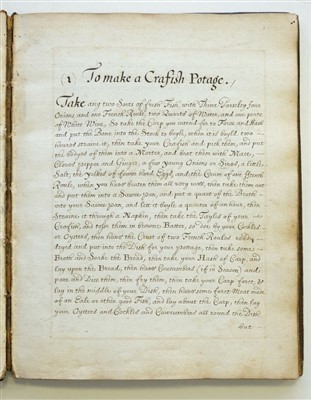 1 To make a Crafish Potage.
Take any two Sorts of fresh Fish, with Thime, Parsley, four
Onions and one French Roule, two Quarts of Water, and one pinte
of White Wine, So take the Carp you intend for to Force and Hash
and put the Bone into the Stock to boyle, when it is boyl'd two
houres straine it, then take your Crafish and pick them, and put
the bodyes of them into a Morter, and beat them with Mace,
Cloves pepper and Ginger, a few young Onions or Sives, a little
Salt, the Yolkes of fower hard Eggs, and the Crum of one French
Roule, when you have beaten them all very well, then take them out
and put them into a Sawce pan, and put a quart of the Broth
into your Sawce pan, and let it boyle a quarter of an hour, then
Straine it through a Napkin, then take the Tayles of your
Crafish, and toss them in browne Butter, so doe by your Cockles
or Oysters, then have the Crust of two French Roules
dryed and put into the Dish for your pottage, then take some
Broth and Soake the Bread, then take your Hash of Carp, and
lay upon the Bread, then have Cucumbers (if in Season) and
pare and Dice them, then fry them, then take your Carp forst, &
lay in the middle of your Dish, then have some forst Meat made
of an Eale or other good Fish, and lay about the Carp, then lay
your Oysters and Cockles and Cucumbers all round the Dish
but